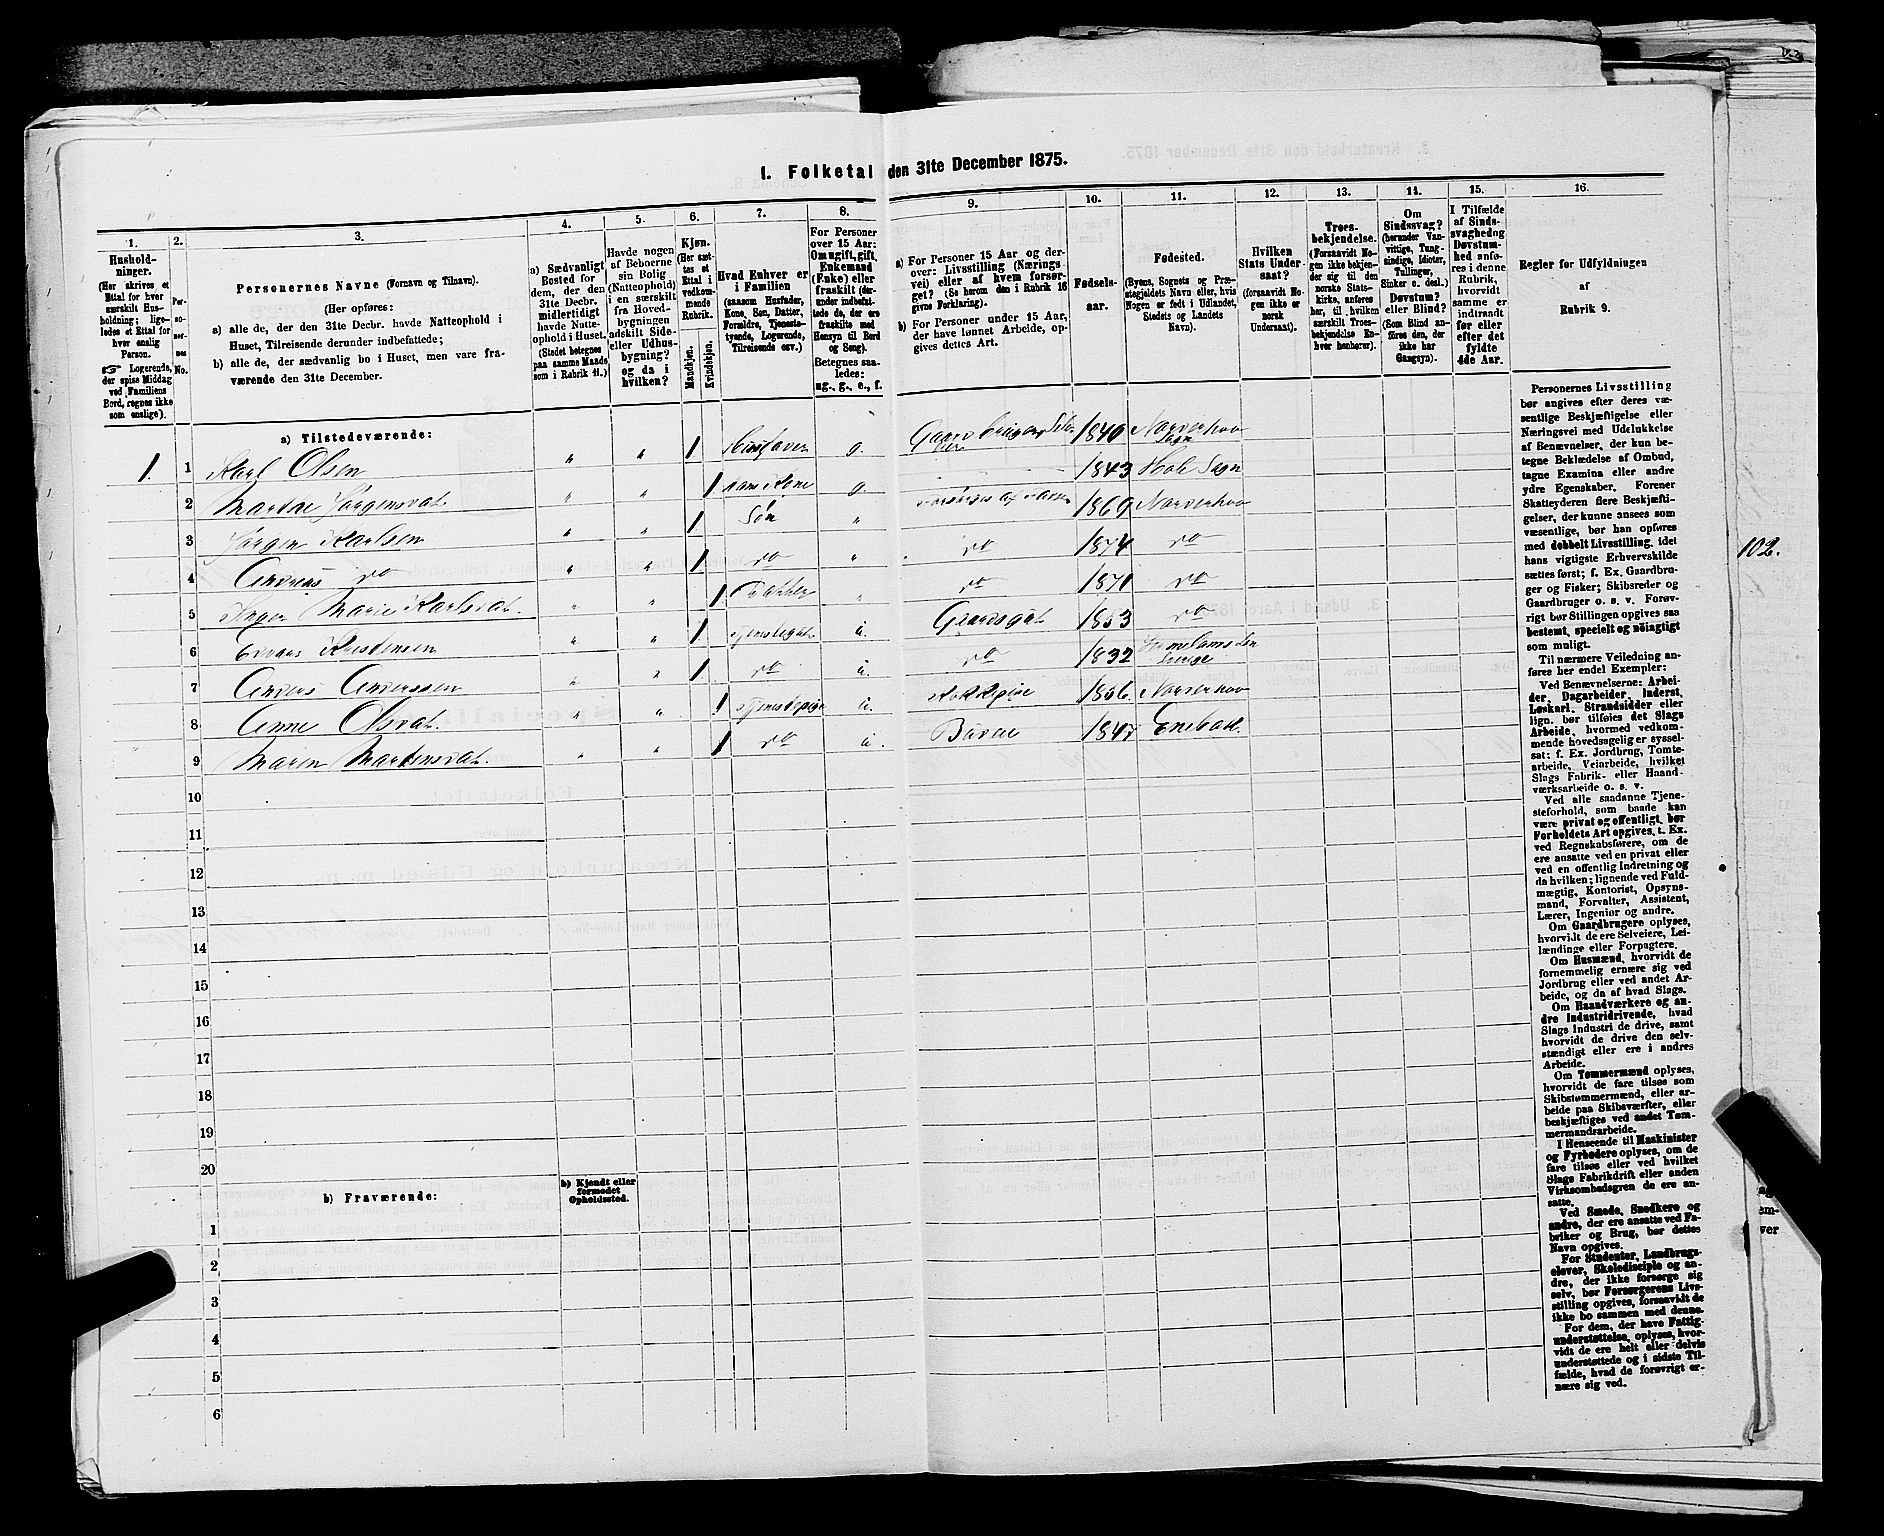 1. Folketal den 31te December 1875.
1.
Hushold-
ninger.
(Her skrives et
Ettal for hver
særskilt Hus-
holdning; lige-
ledes et Ettal for
hver enslig
Person.
☞ Logerende,
der spise Middag
ved Familiens
Bord, regnes ikke
som enslige).
2.
Per-
so-
ner-
nes
No.
3.
Personernes Navne (Fornavn og Tilnavn).
(Her opføres:
a) alle de, der den 31te Decbr. havde Natteophold i
Huset, Tilreisende derunder indbefattede;
b) alle de, der sædvanlig bo i Huset, men vare fra-
værende den 31te December.
4.
a) Sædvanligt
Bosted for
dem, der den
31te Decbr.
midlertidigt
havde Natte-
ophold i Huset.
(Stedet betegnes
paa samme Maade
som i Rubrik 11.)
5.
Havde nogen
af Beboerne
sin Bolig
(Natteophold)
i en særskilt
fra Hoved-
bygningen
adskilt Side-
eller Udhus-
bygning?
og da i
hvilken?
6.
Kjøn.
(Her sæt-
tes et
Ettal i
vedkom-
mende
Rubrik.
Mandkjøn.
Kvindekjøn.
7.
Hvad Enhver er
i Familien
(saasom Husfader,
Kone, Søn, Datter,
Forældre, Tjeneste-
tyende, Logerende,
Tilreisende osv.)
8.
For Personer
over 15 Aar:
Om ugift, gift,
Enkemand
(Enke) eller
fraskilt (der-
under indbefat-
tede de, der ere
fraskilte med
Hensyn til Bord
og Seng).
Betegnes saa-
ledes:
ug., g., e., f.
9.
a) For Personer 15 Aar og der-
over: Livsstilling (Nærings-
vei) eller af hvem forsør-
get? (Se herom den i Rubrik 16
givne Forklaring).
b) For Personer under 15 Aar,
der have lønnet Arbeide, op-
gives dettes Art.
10.
Fødsels-
aar.
11.
Fødested.
(Byens, Sognets og Præ-
stegjeldets Navn eller, hvis
Nogen er født i Udlandet,
Stedets og Landets
Navn).
12.
Hvilken
Stats Under-
saat?
(forsaavidt No-
gen ikke er
norsk
Undersaat).
13.
Troes-
bekjendelse.
(Forsaavidt No-
gen ikke bekjen-
der sig til den
norske Stats-
kirke, anføres
her, til hvilken
særskilt Troes-
bekjendelse En-
hver henhører).
14.
Om
Sindssvag?
(herunder Van-
vittige, Tung-
sindige, Idioter,
Tullinger,
Sinker o. desl.)
Døvstum?
eller Blind?
(Som Blind an-
føres den, der
ikke har
Gangsyn).
15.
I Tilfælde
af Sinds-
svaghed og
Døvstum-
hed anfø-
res i denne
Rubrik,
hvorvidt
samme er
indtraadt
før eller
efter det
fyldte
4de Aar.
16.
Regler for Udfyldningen
af
Rubrik 9.
a) Tilstedeværende:
1. 1 Karl Olsen " " 1 Husfader g. Gaardbruger 1840 Norderhov Sogn
2 Marthe Jørgensdat. " " 1 hans Kone g. 1843 Hole Sogn
3 Jørgen Karlsen " " 1 Søn " Forsørges af Faderen 1869 Norderhov
4 Anders do " " 1 do " do 1874 do
5 Inger Marie Karlsdat. " " 1 Datter " do 1871 do
6 Kristensen " " 1 Tjenestegut u. Gaardsgut 1853 do
7 Anders Anderssen " " 1 do u. do 1832 Sverige
8 Anne Olsdat. " " 1 Tjenestepige u. 1856 Norderhov
9 Maren Martinsdat. " " 1 do u. Budeie 184 Enebak.
10
11
12
13
14
15
16
17
18
19
20
b) Fraværende:
b) Kjendt eller
formodet
Opholdssted.
1
2
3
4
5
6
Personernes Livsstilling
bør angives efter deres væ-
sentlige Beskjæftigelse eller
Næringsvei med Udelukkelse
af Benævnelser, der kun be-
tegne Beklædelse af Ombud,
tagne Examina eller andre
ydre Egenskaber. Forener
Skatteyderen flere Beskjæfti-
gelser, der kunne ansees som
væsentlige, bør han opføres
med dobbelt Livsstilling, idet
hans vigtigste Erhvervskilde
sættes først; f. Ex. Gaardbru-
ger og Fisker; Skibsreder og
Gaardbruger o. s. v. Forøv-
rigt bør Stillingen opgives saa
bestemt, specielt og nøiagtigt
som muligt.
Til nærmere Veiledning an-
føres her endel Exempler:
Ved Benævnelserne: Arbei-
der, Dagarbeider, Inderst,
Løskarl, Strandsidder eller
lign. bør tilføies det Slags
Arbeide, hvormed vedkom-
mende hovedsagelig er syssel-
sat: f. Ex. Jordbrug, Tomte-
arbeide, Veiarbeide, hvilket
Slags Fabrik- eller Haand-
værksarbeide o. s. v.
Ved alle saadanne Tjene-
steforhold, som baade kan
være privat og offentligt, bør
Forholdets Art opgives, t. Ex.
ved Regnskabsførere, om de
ere ansatte ved en privat eller
ved en offentlig Indretning og
da hvilken; lignende ved Fuld-
mægtig, Kontorist, Opsyns-
mand, Forvalter, Assistent,
Lærer, Ingeniør og andre.
Om Gaardbrugere oplyses,
hvorvidt de ere Selveiere, Lei-
lændinge eller Forpagtere.
Om Husmænd, hvorvidt de
fornemmelig ernære sig ved
Jordbrug eller ved andet Ar-
beide, og da af hvad Slags.
Om Haandværkere og an-
dre Industridrivende, hvad
Slags Industri de drive, samt
hvorvidt de drive den selv-
stændigt eller ere i andres
Arbeide.
Om Tømmermænd oplyses,
hvorvidt de fare tilsøs som
Skibstømmermænd, eller ar-
beide paa Skibsværfter, eller
beskjæftiges ved andet Tøm-
mermandsarbeide.
I Henseende til Maskinister
og Fyrbødere oplyses, om de
fare tilsøs eller ved hvilket
Slags Fabrikdrift eller anden
Virksomhedsgren de ere an-
satte.
Ved Smede, Snedkere og
andre, der ere ansatte ved Fa-
briker og Brug, bør dettes
Navn opgives.
For Studenter, Landbrugs-
elever, Skoledisciple og an-
dre, der ikke forsørge sig
selv, bør Forsørgerens Livs-
stilling opgives, forsaavidt de
ikke bo sammen med denne.
For dem, der have Fattig-
understøttelse, oplyses, hvor-
vidt de ere helt eller delvis
understøttede og i sidste Til-
fælde, hvad de forøvrigt er-
nære sig ved.
102.